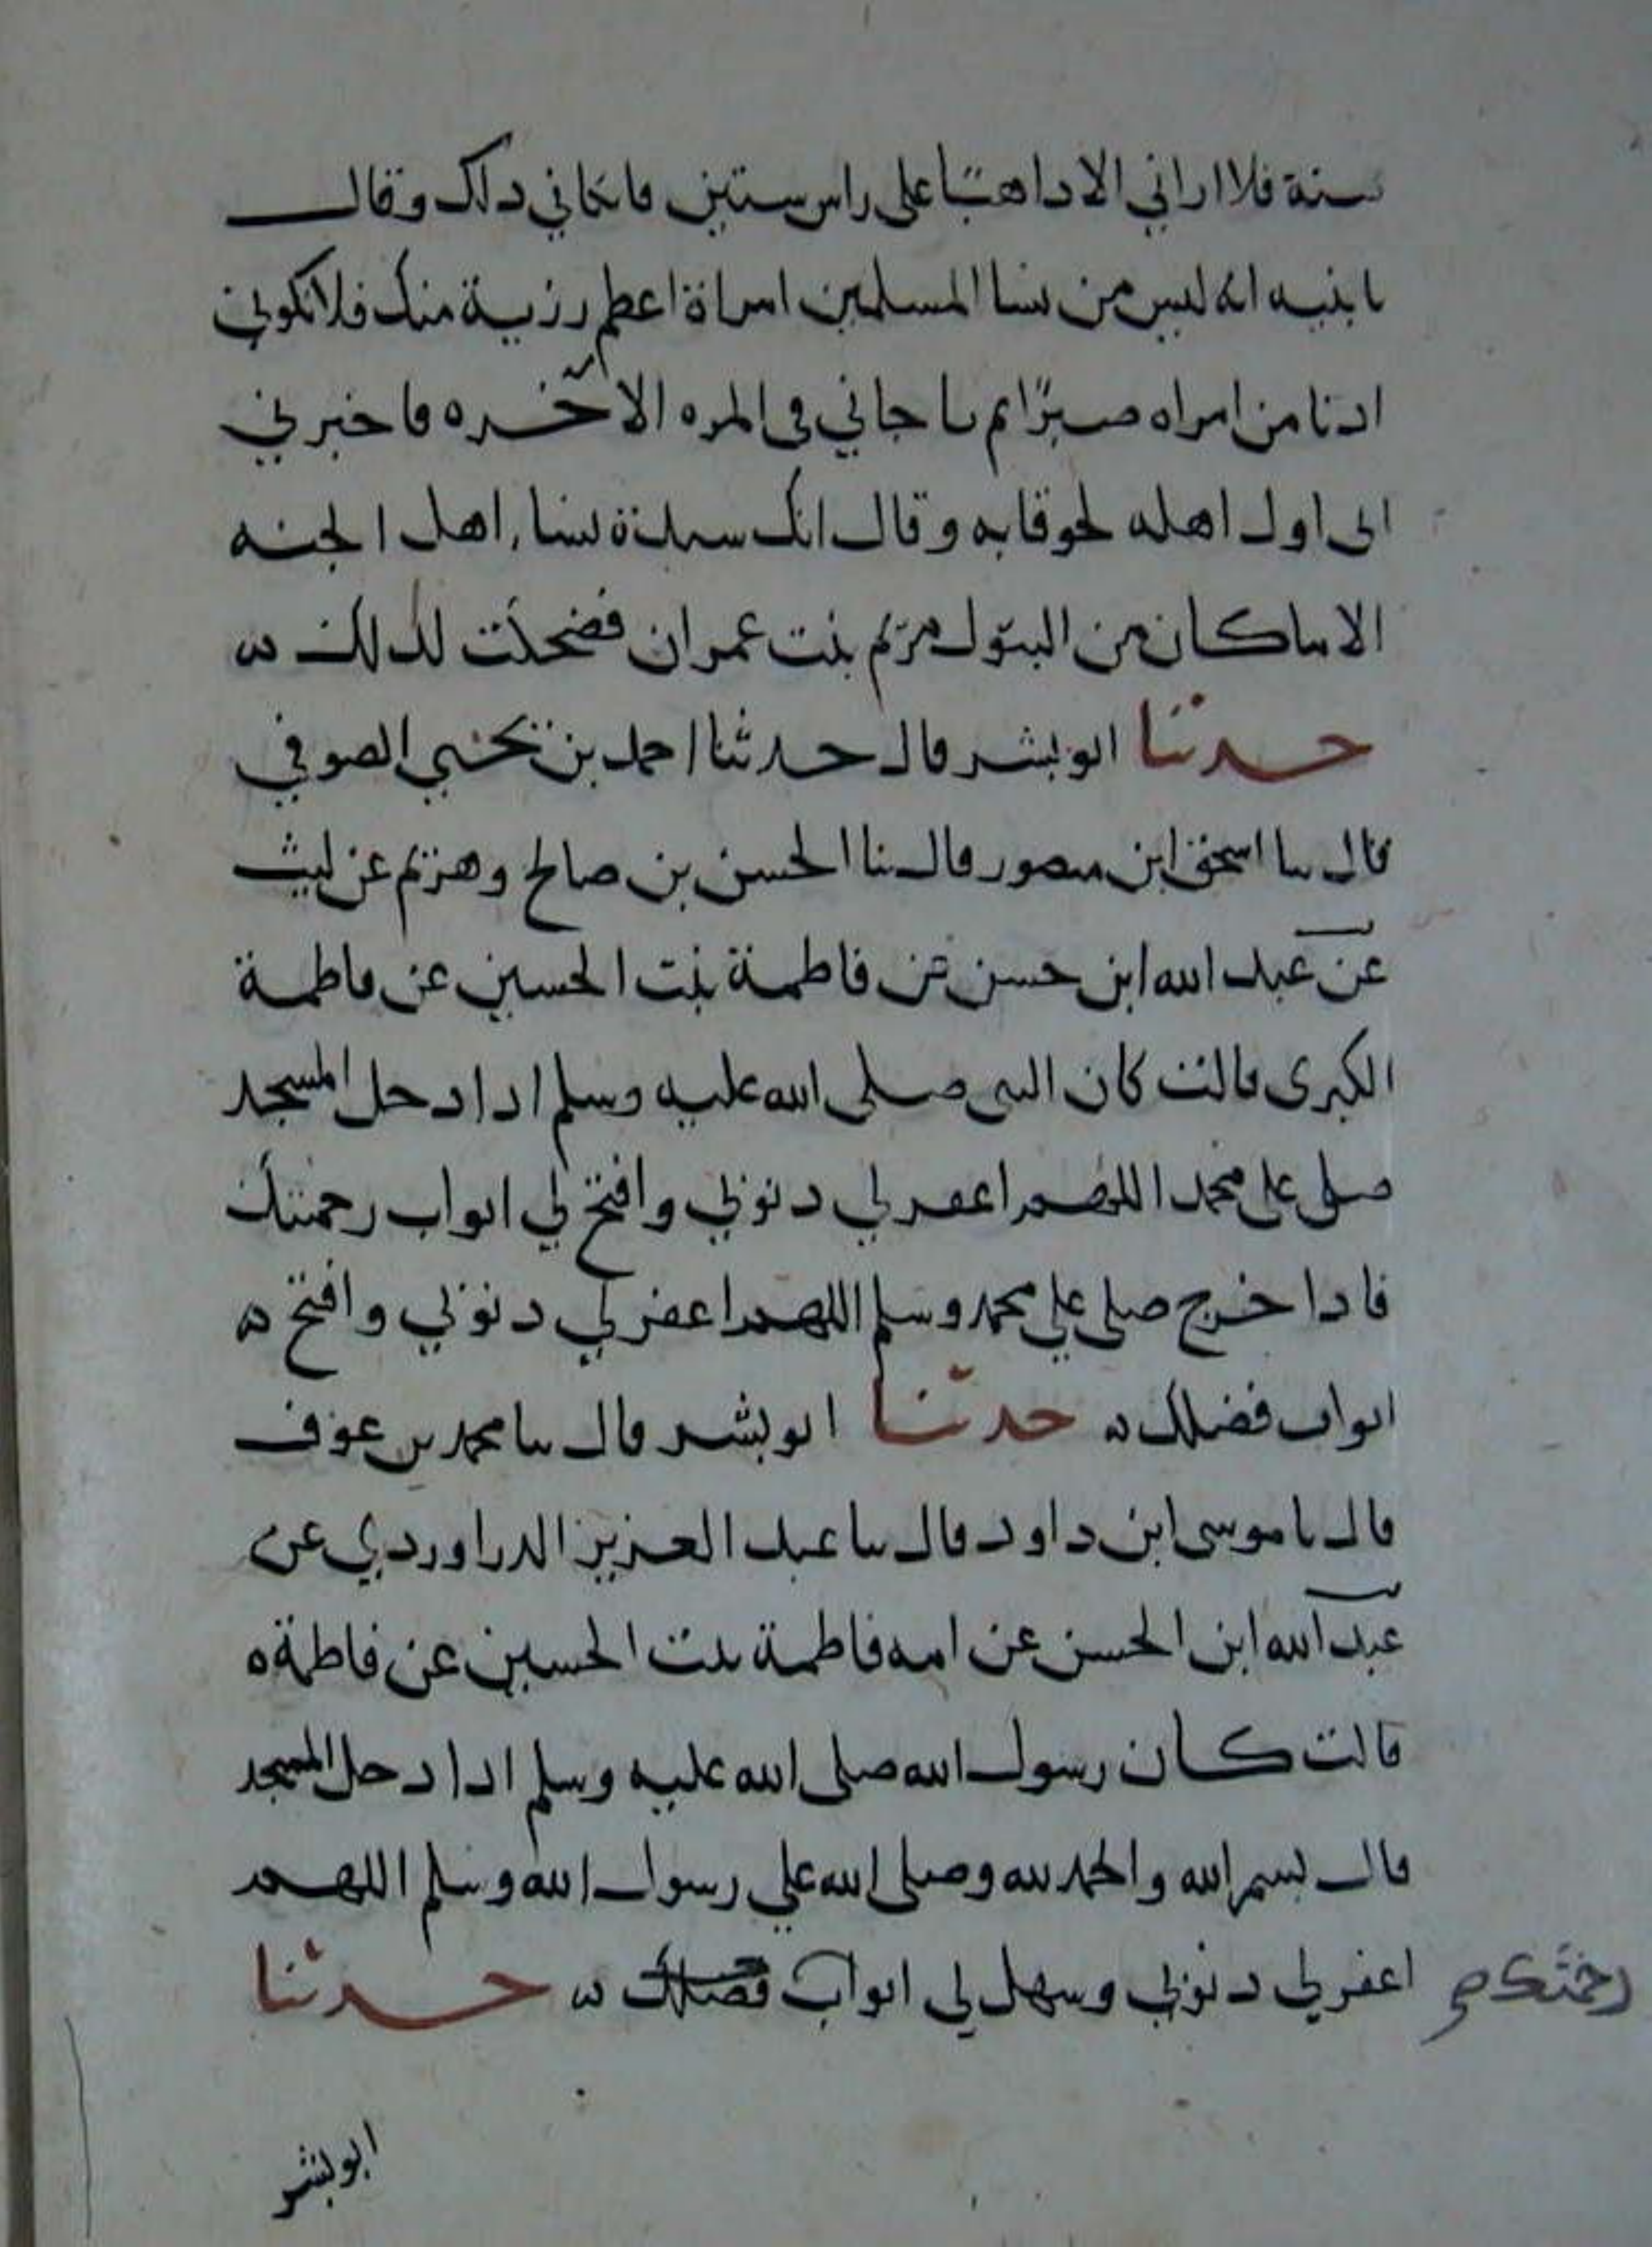 سنة فلا اراني الا داهبًا على راس ستين فابكاني دلك وقال
يا بنيه انه ليس من نسا المسلمين امراة اعظم رزية منك فلا تكوني
ادنا من امراه صبرًا ثم ناجاني في المره الاخره فاخبرني
اني اول اهله لحوقا به وقال انك سيدة نساء اهل الجنه
الا ما كان من البتول مريم بنت عمران فضحكت لذلك ه
حدثنا ابو بشر قال حدثنا احمد بن يحيى الصوفي
قال ثنا اسحق ابن منصور قال ثنا الحسن بن صالح وهريم عن ليث
عن عبد الله ابن حسن عن فاطمة بنت الحسين عن فاطمة
الكبرى قالت كان النبي صلى الله عليه وسلم ادا دخل المسجد
صلى على محمد اللهم اغفر لي دنوبي وافتح لي ابواب رحمتك
فادا خرج صلى علي محمد وسلم اللهم اغفر لي دنوبي وافتح ه
ابواب فضلك ه حدثنا ابو بشر قال ثنا محمد بن عوف
قال نا موسى ابن داود قال ثنا عبد العزيز الدراوردي عن
عبد الله ابن الحسن عن امه فاطمة بنت الحسين عن فاطمة ه
قالت كان رسول الله صلى الله عليه وسلم ادا دخل المسجد
قال بسم الله والحمد لله وصلى الله علي رسول الله وسلم اللهم
اغفر لي دنوبي وسهل لي ابواب فضلك ه حدثنا
رحمتك صح
ابو بشر